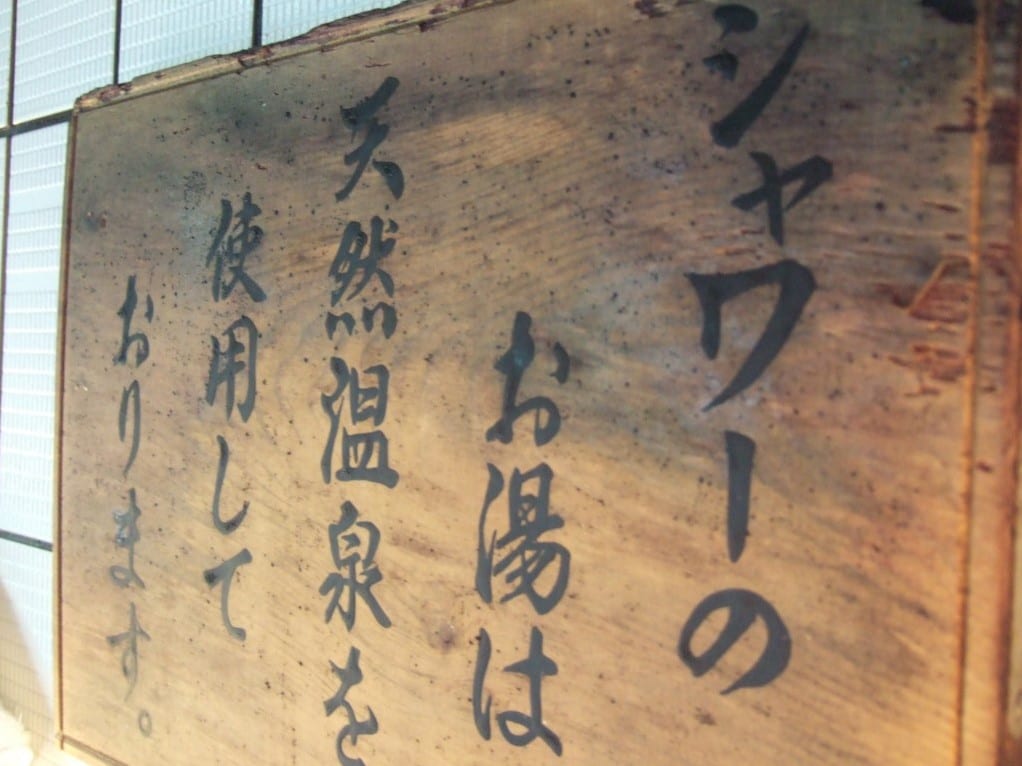 シャワーの
お湯は
天然温泉を
使用して
おります。